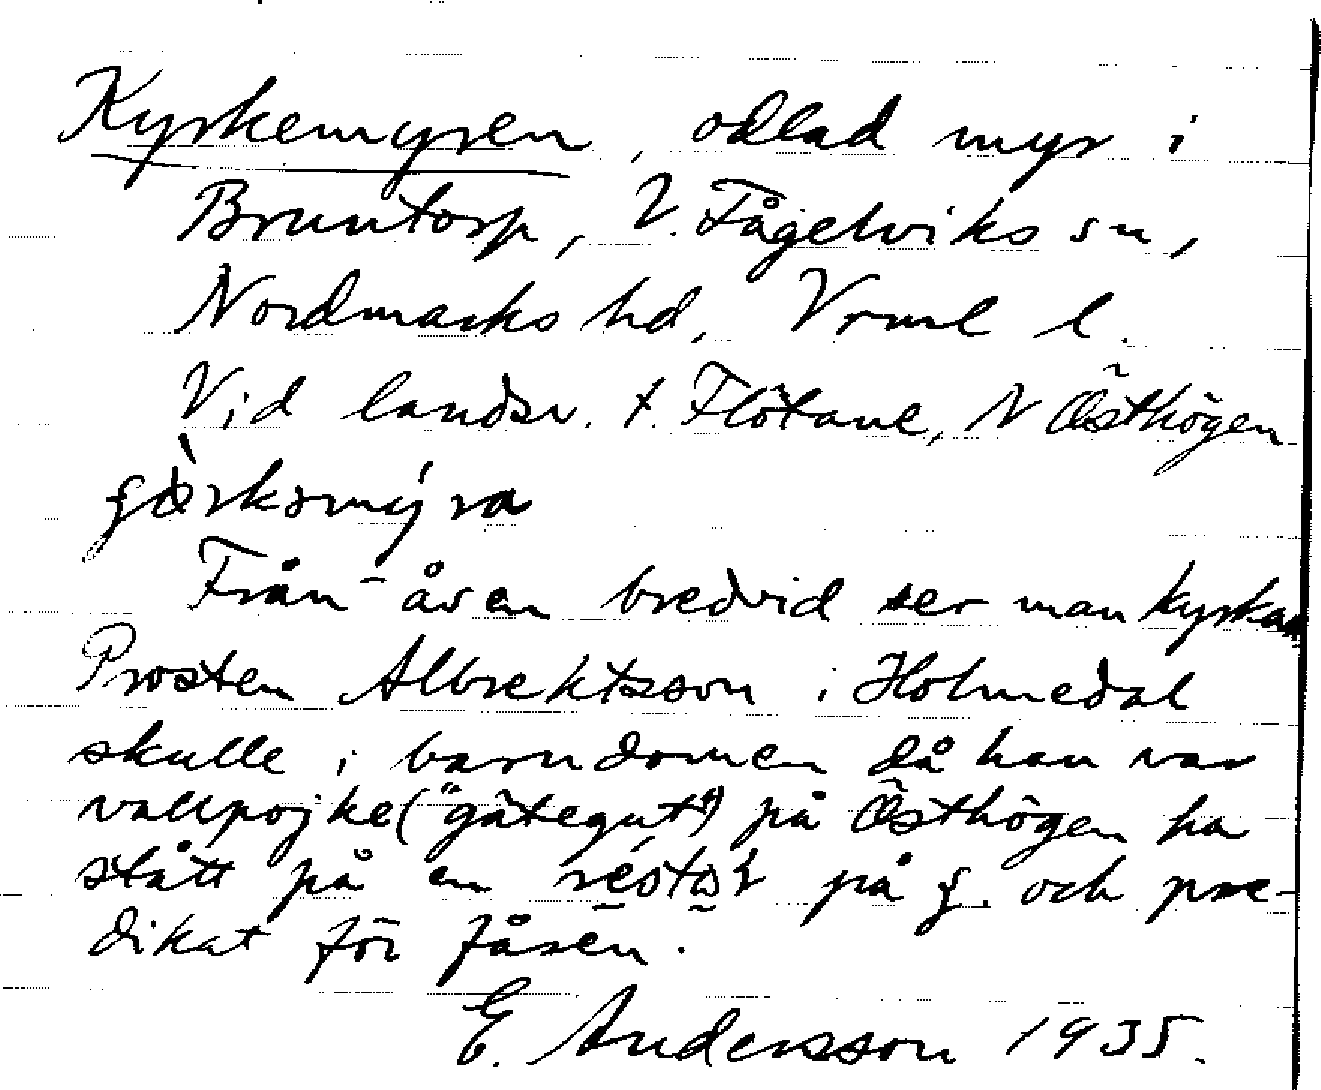 Kyrkemyren, odlad myr i
Bruntorp, V. Fågelviks sn,
Nordmarks hd, Vrml l.
Vid landsv. t. Flötane, N Östhögen
Från åsen bredvid ser man kyrkan
Prosten Albrektsson i Holmedal
skulle i barndomen då han var
vallpojke ("gätegut") på Östhögen ha
stått på en på ʃ. och pre-
dikat för fåren.
E. Andersson 1935.